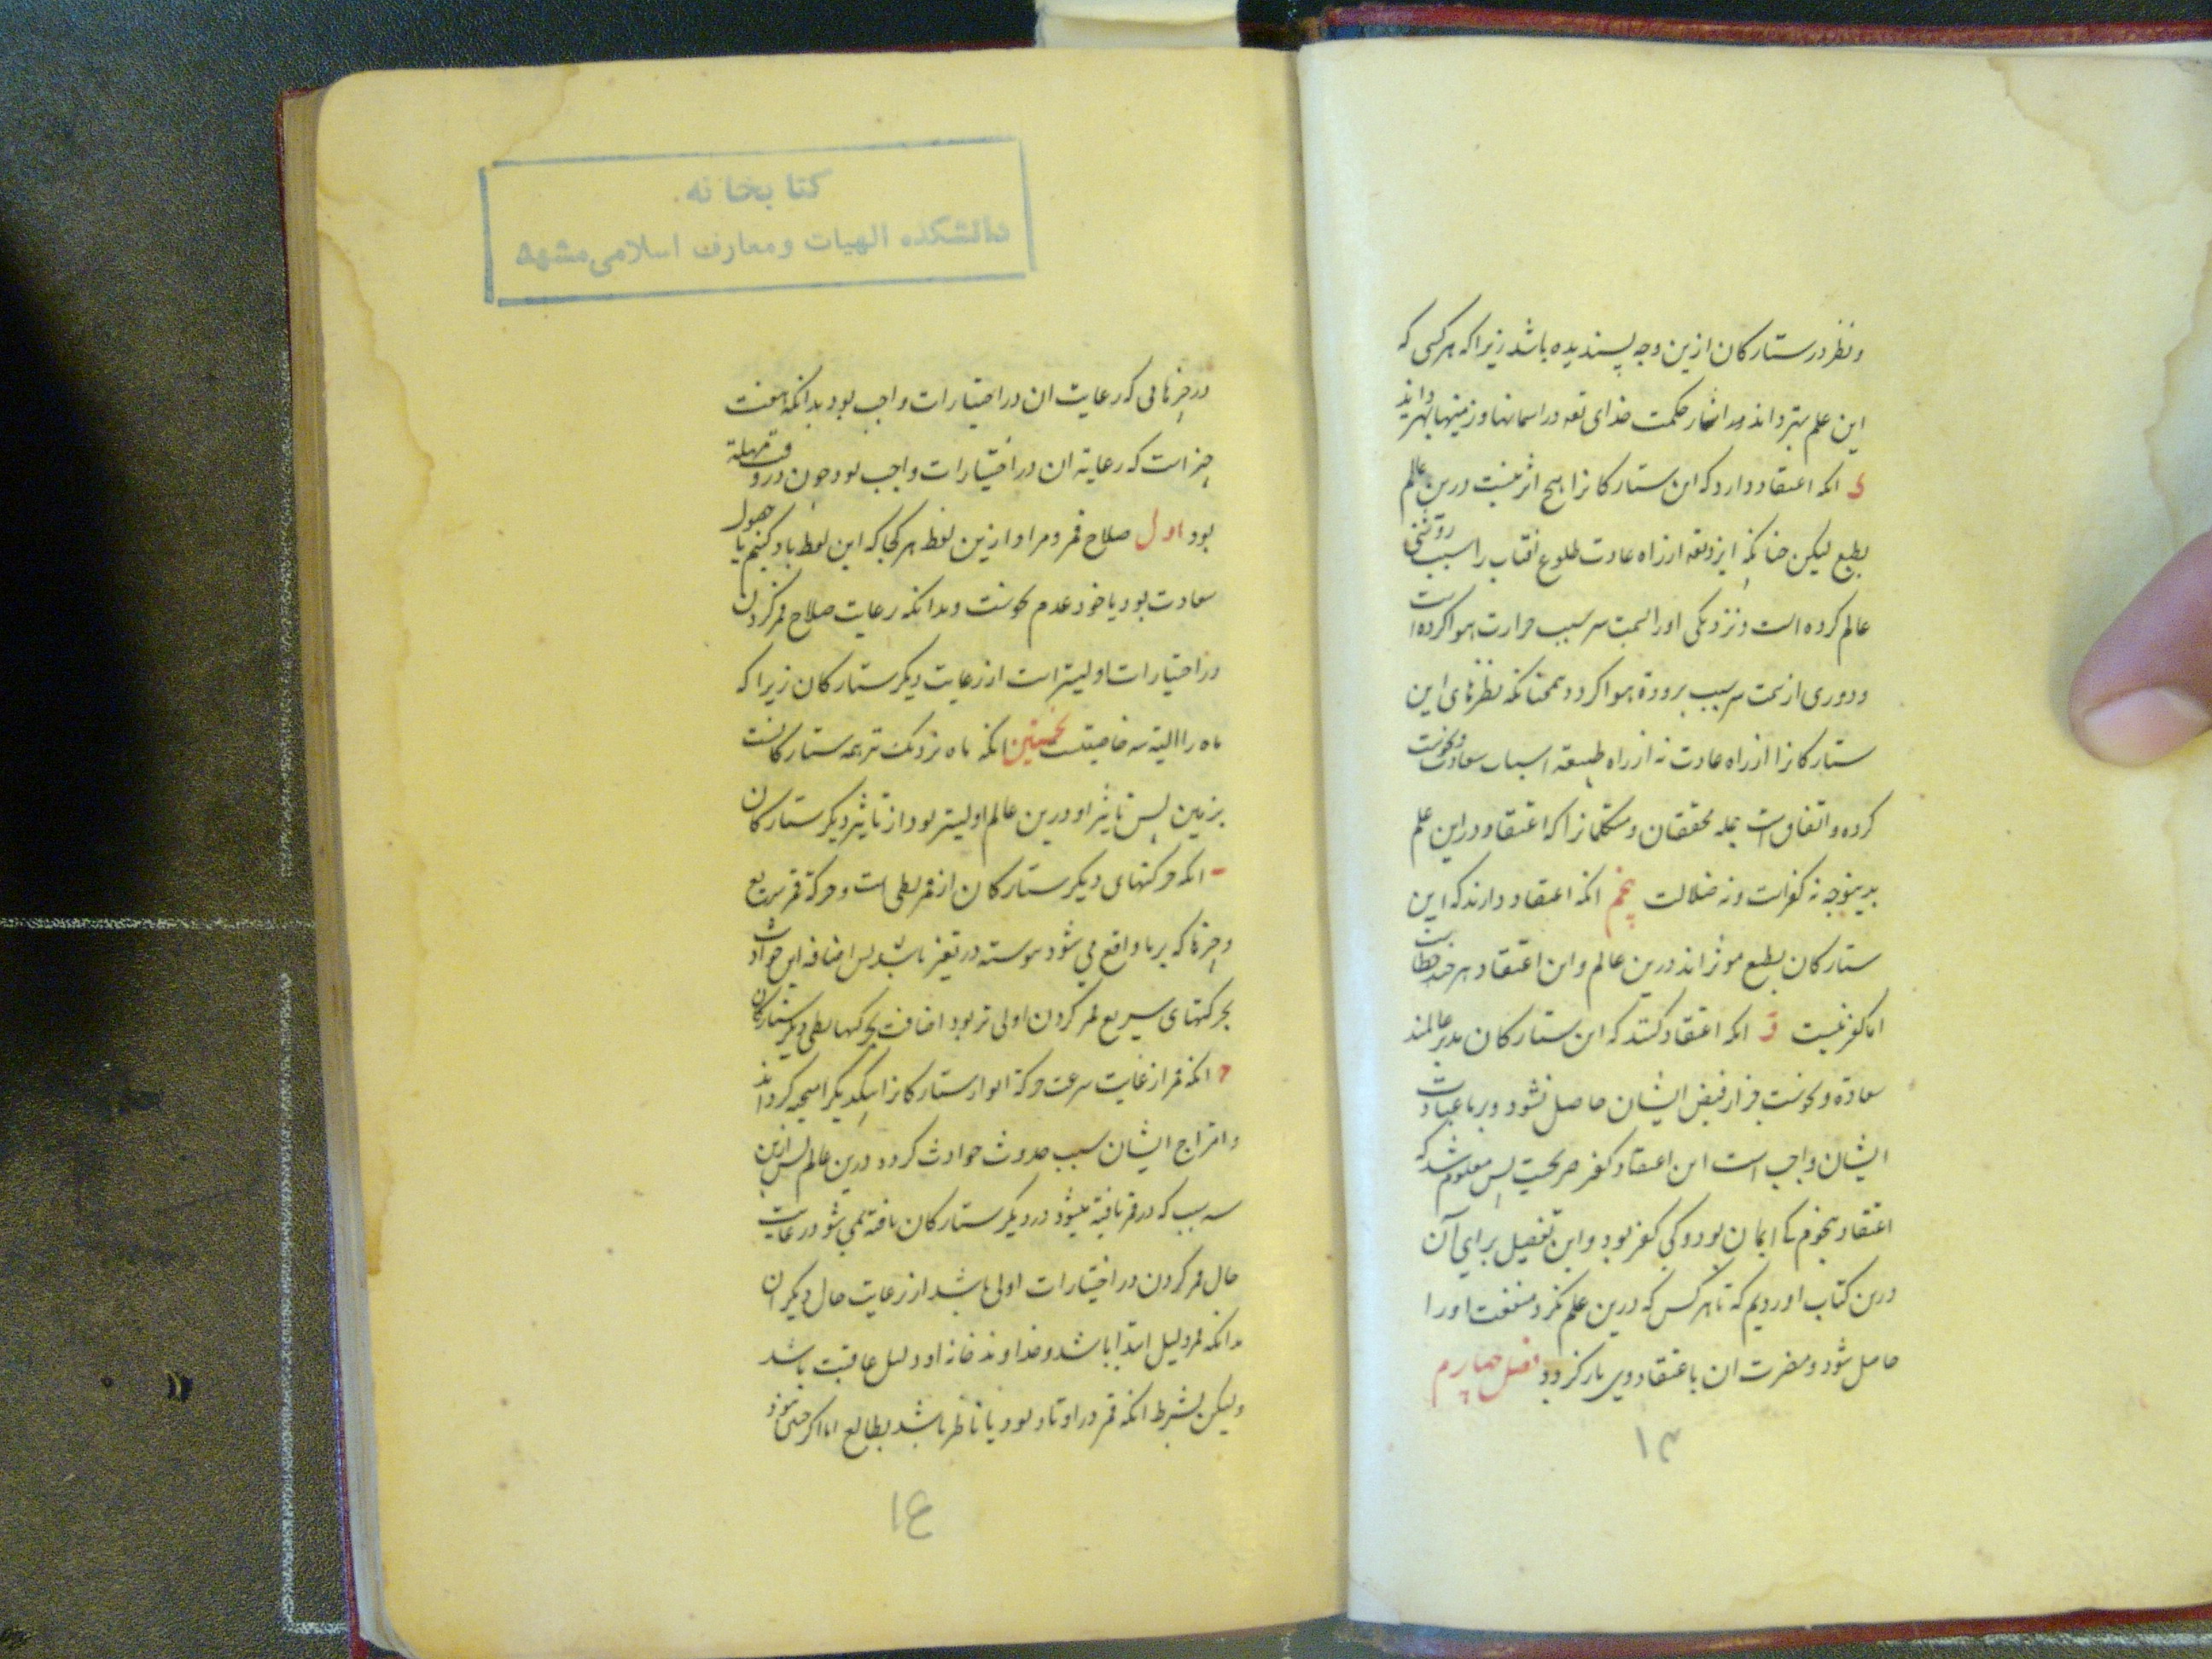 ونظر در ستارکان ازین وجه پسندیده باشد زیرا که هر کسی که
این علم بهتر داند در اسرار حکمت خدای تعه در اسمانها و زمینها بهتر داند
د انکه اعتقاد دارد که این ستارکانرا هیچ اثر نیست درین عالم
بطبع لیکن چنانکه ایزد تعه از راه عادت طلوع افتاب را سبب روشنی
عالم کرده است و نزدیکی او را بسمت سر سبب حرارت هوا کرده است
و دوری از سمت سر سبب برودة هوا کرد و همچنانکه نظرهای این
ستارکانرا از راه عادت نه از راه طبیعة اسباب سعادت و نحوست
کرده و اتفاق است جمله محققان و متکلمانرا که اعتقاد در این علم
بدینوجه نه کفر است و نه ضلالت پنجم انکه اعتقاد دارند که این
ستارکان بطبع موثر اند درین عالم و این اعتقاد هر چند خطاست
اما کفر نیست و انکه اعتقاد کنند که این ستارکان مدبر عالمند
سعادة و نحوست جز از فیض ایشان حاصل نشود و بر ما عبادت
ایشان واجب است این اعتقاد کفر صریحست پس معلوم شد که
اعتقاد نجوم کی ایمان بود و کی کفر بود و این تفصیل برای آن
درین کتاب اوردیم که تا هر کس که درین علم نکرد منفعت او را
حاصل شود و مضرت ان باعتقاد وی باز نکردد فصل چهارم
۱۳
کتابخانه
دانشکده الهیات و معارف اسلامی مشهد
در چیزهایی که رعایت ان در اختیارات واجب بود بدانکه هفت
چیز است که رعایة ان در اختیارات واجب بود چون در وقت مهلة
بود اول صلاح قمر و مراد ازین لفظ هر کجا که این لفظ یاد کنیم یا حصول
سعادت بود یا خود عدم نحوست و بدانکه رعایت صلاح قمر کردن
در اختیارات اولیتر است از رعایت دیکر ستارکان زیرا که
ماه را البته سه خاصیتست نخستین انکه ماه نزدیک ترین همه ستارکانست
بزمین پس تاثیر او درین عالم اولیتر بود از تاثیر دیکر ستارکان
ب انکه حرکتهای دیکر ستارکان از قمر بطی است و حرکة قمر سریع
و چیزها که بر ما واقع می شود پیوسته در تغیر باشد پس اضافه این حوادث
بحرکتهای سریع قمر کردن اولی تر بود اضافت بحرکتها بطی دیکر ستارکان
ج انکه قمر از غایت سرعت حرکة انوار ستارکانرا بیکدیکر امیخته کرداند
و امتزاج ایشان سبب حدوث حوادث کردد درین عالم پس ازین
سه سبب که در قمر یافته میشود در دیکر ستارکان یافته نمی شود رعایت
حال قمر کردن در اختیارات اولی باشد از رعایت حال دیکران
بدانکه قمر دلیل ابتدا باشد و خداوند خانه او دلیل عاقبت باشد
ولیکن بشرط انکه قمر در اوتاد بود یا ناظر باشد بطالع اما اکر چنین نبود
۱۴